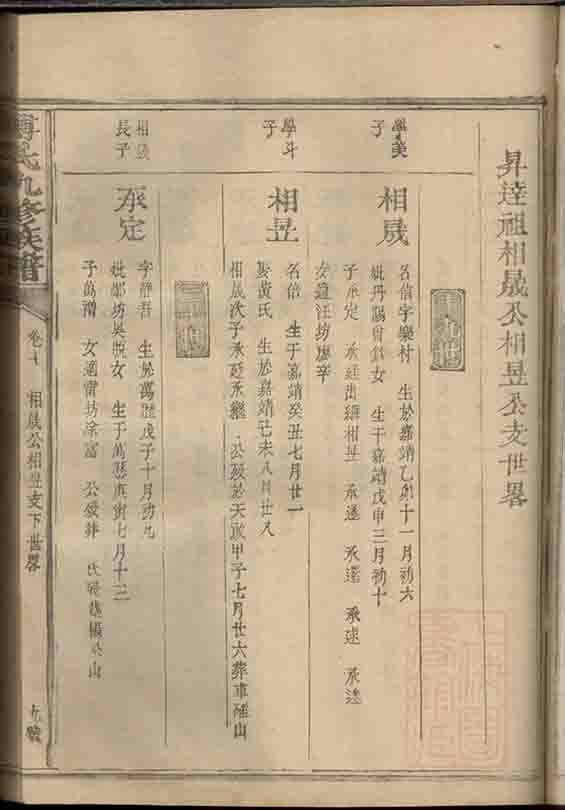 昇達祖相晟公相昱公支世畧
學美
子
相晟
名信字樂村 生於嘉靖乙卯十一月初六
妣丹陽曾 女 生于嘉靖戊申三月初十
子承定 承廷出繼相昱 承遂 承選 承逑 承逵
女適汪坊廖
學斗
子
相昱
名倍 生于嘉靖癸丑七月廿一
娶黃氏 生於嘉靖己未八月廿八
相晟次子承廷承繼 公歿於天啟甲子七月廿六葬車 山
相晟
長子
承定
字靜吾 生於萬歷戊子十月初九
妣鄒坊吳 女 生于萬歷庚寅七月十三
子萬 女適雷坊涂富 公歿葬 氏歿
傅氏九修族譜
卷七 相晟公相昱支下世畧